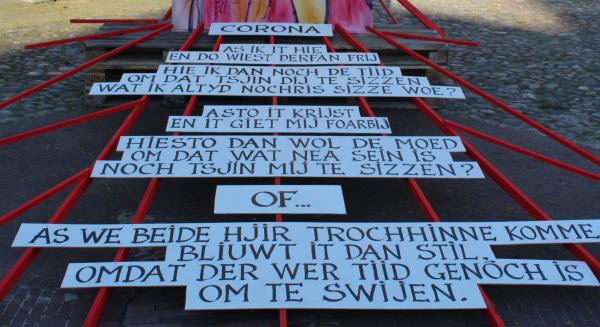 CORONA
AS IK IT HIE
EN DO WIEST DERFAN FRIJ
HIE IK DAN NOCH DE TIID
OM DAT TSJIN DIJ TE SIZZEN
WAT IK ALTYD NOCHRIS SIZZE WOE?
ASTO IT KRIJST
EN IT GIET MIJ FOARBIJ
HIESTO DAN WOL DE MOED
OM DAT WAT NEA SEIN IS
NOCH TSJIN MIJ TE SIZZEN?
OF...
AS WE BEIDE HJIR TROCHHINNE KOMME
BLIUWT IT DAN STIL,
OMDAT DER WER TIID GENÔCH IS
OM TE SWIJEN.